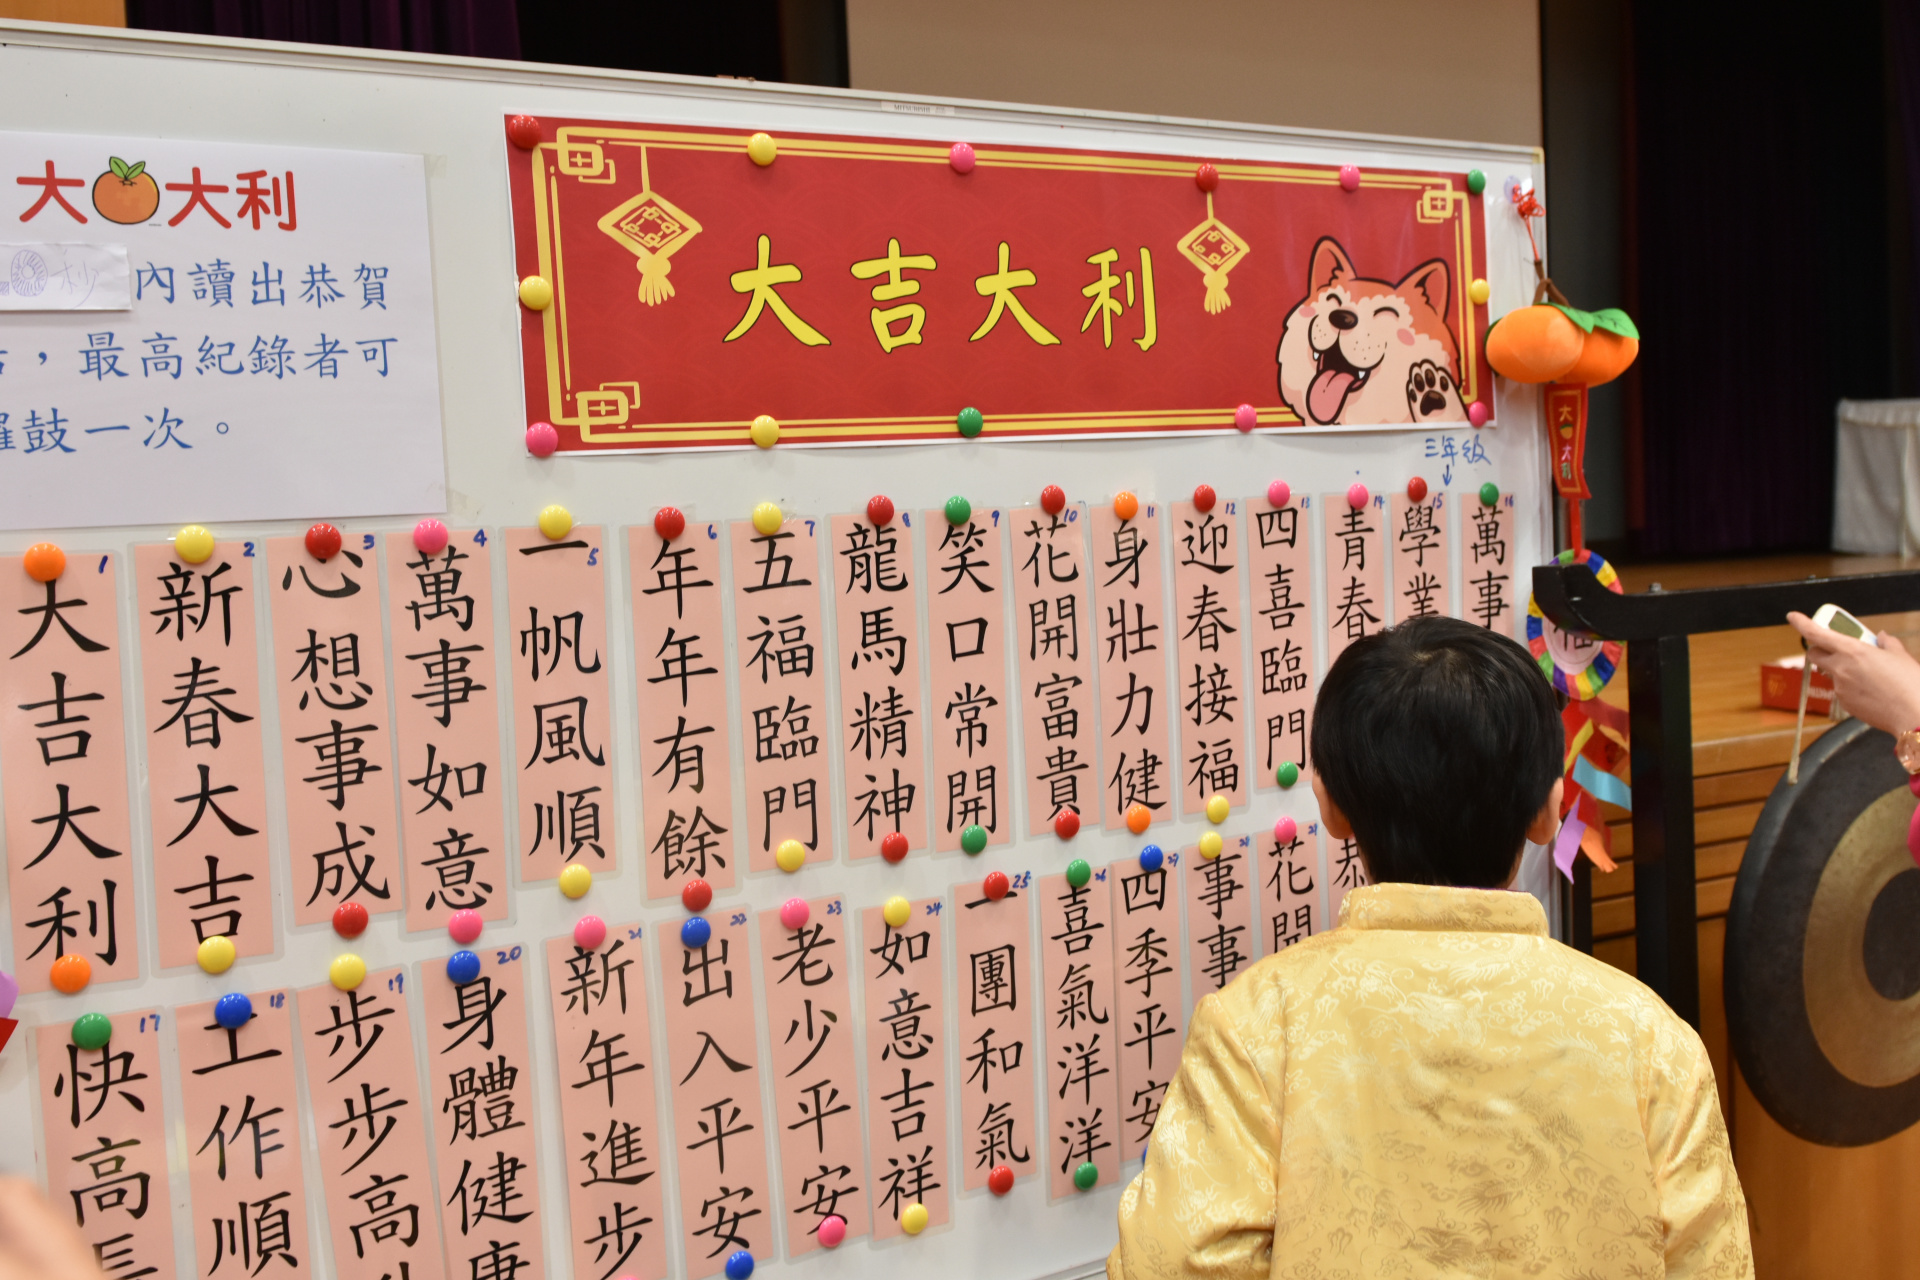 大大利
秒內讀出恭賀
,最高紀錄者可
鼓一次。
大吉大利
三年級
1 大吉大利
2 新春大吉
3 心想事成
4 萬事如意
5 一帆風順
6 年年有餘
7 五福臨門
8 龍馬精神
9 笑口常開
10 花開富貴
11 身壯力健
12 迎春接福
13 四喜臨門
14 青春
15 學業
16 萬事
17 快高長
18 工作順
19 步步高
20 身體健康
21 新年進步
22 出入平安
23 老少平安
24 如意吉祥
25 一團和氣
26 喜氣洋洋
27 四季平安
28 事事
29 花開
恭
大大利
福